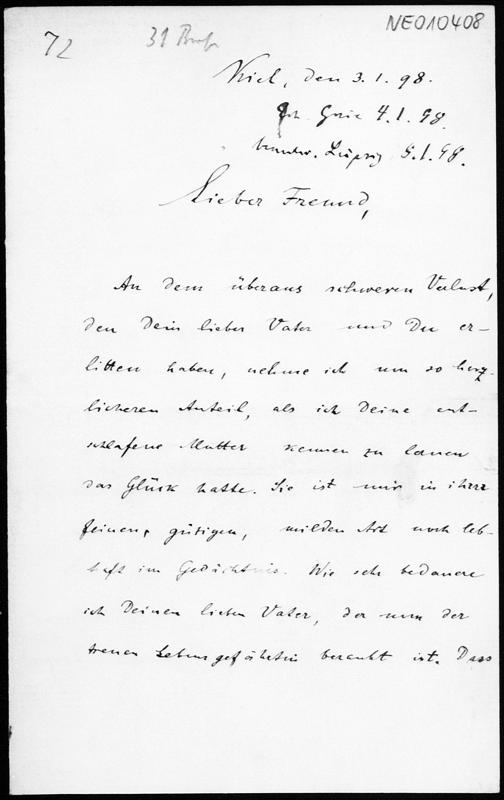 NE010408
72
31
Kiel, den 3.1.98.
4.1.98.
Leipzig 5.1.98.
Lieber Freund,
An dem überaus schweren Verlust,
den Dein lieber Vater und Du er-
litten haben, nehme ich um so herz-
licheren Anteil, als ich Deine ent-
schlafene Mutter kennen zu lernen
das Glück hatte. Sie ist mir in ihrer
feinen, gütigen, milden Art noch leb-
haft im Gedächtnis. Wie sehr bedauere
ich Deinen lieben Vater, der nun der
treuen Lebensgefährtin beraubt ist. Dass